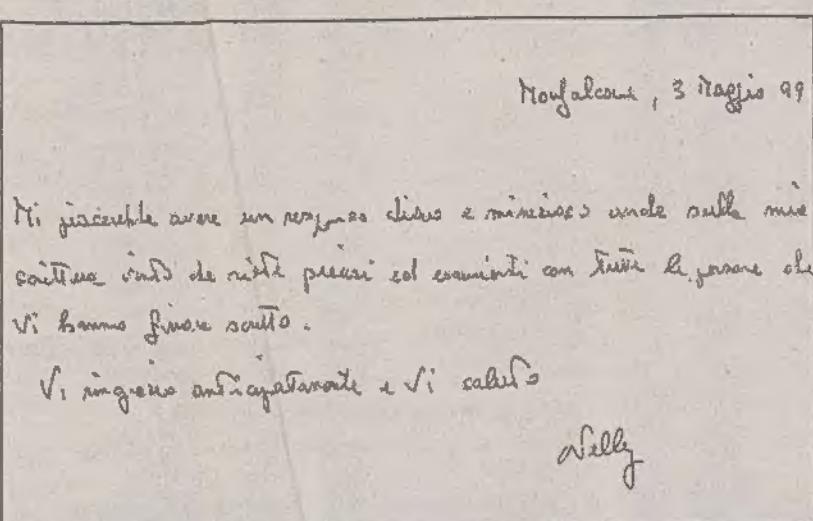 Monfalcone, 3 Maggio 99
Mi piacerebbe avere un responso chiaro e minuzioso anche sulla mia
scrittura visto che siete precisi ed esaurienti con tutte le persone che
Vi hanno finora scritto.
Vi ringrazio anticipatamente e Vi saluto
Nelly